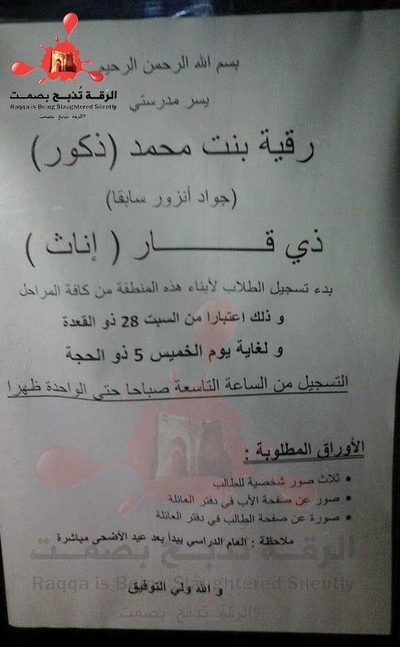 بسم الله الرحمن الرحيم
الرقة تذبح بصمت
Raqqa is Being Slaughtered Silently
#الرقة_تذبح_بصمت
يسر مدرستي
رقية بنت محمد (ذكور)
(جواد أنزور سابقا)
ذي قـــــار ( إناث )
بدء تسجيل الطلاب لأبناء هذه المنطقة من كافة المراحل
و ذلك اعتبارا من السبت 28 ذو القعدة
و لغاية يوم الخميس 5 ذو الحجة
التسجيل من الساعة التاسعة صباحا حتى الواحدة ظهرا
الأوراق المطلوبة :
• ثلاث صور شخصية للطالب
• صور عن صفحة الأب في دفتر العائلة
• صورة عن صفحة الطالب في دفتر العائلة
ملاحظة : العام الدراسي يبدأ بعد عيد الأضحى مباشرة
الرقة تذبح بصمت
Raqqa is Being Slaughtered Silently
و الله ولي التوفيق
#الرقة_تذبح_بصمت